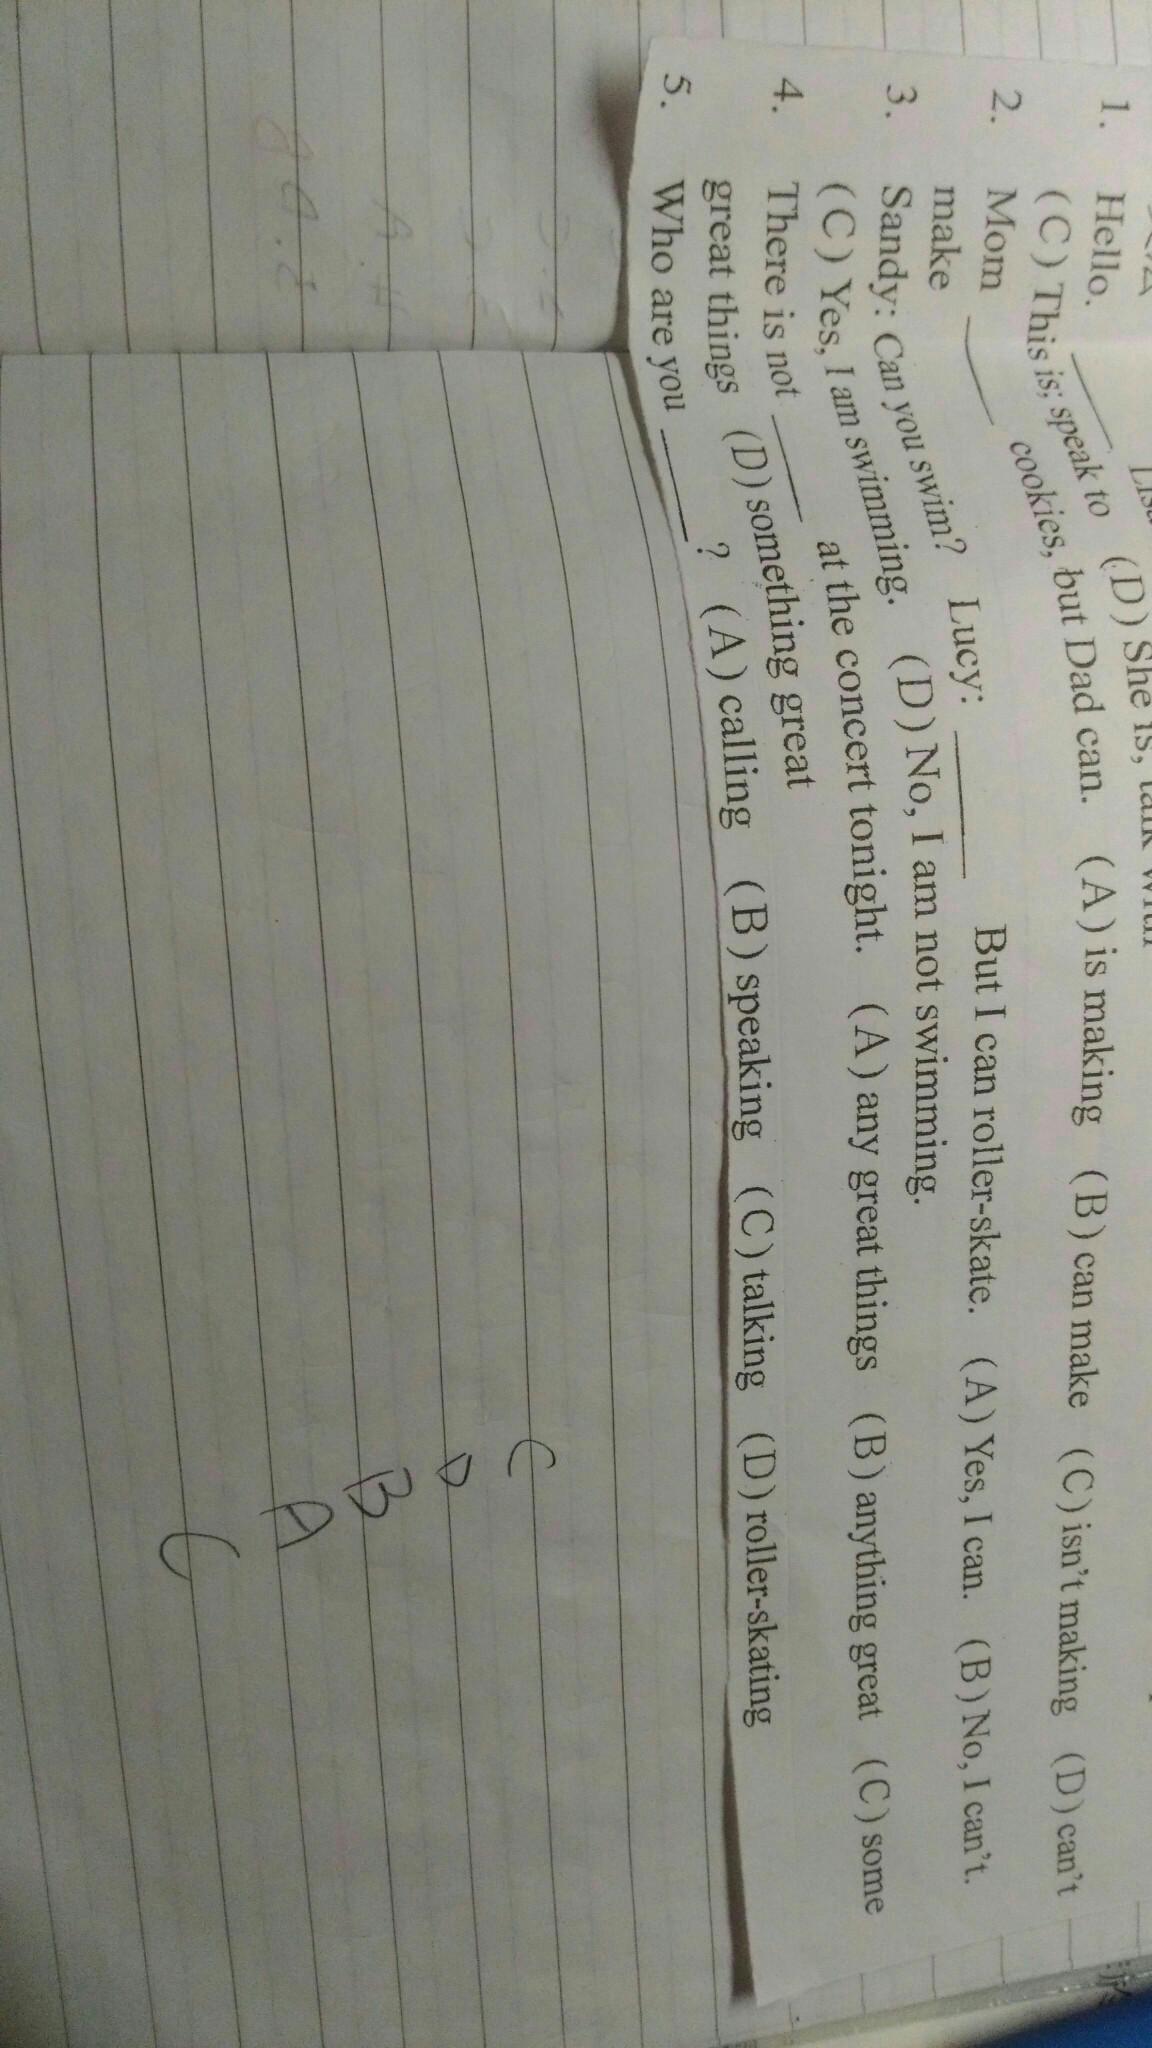 (D) She is, talk with
1. Hello. ____
(C) This is; speak to
2. Mom ____ cookies, but Dad can. (A) is making (B) can make (C) isn't making (D) can't
make
3. Sandy: Can you swim? Lucy: ____ But I can roller-skate. (A) Yes, I can. (B) No, I can't.
(C) Yes, I am swimming. (D) No, I am not swimming.
4. There is not ____ at the concert tonight. (A) any great things (B) anything great (C) some
great things (D) something great
5. Who are you ____? (A) calling (B) speaking (C) talking (D) roller-skating
C
D
B
A
C